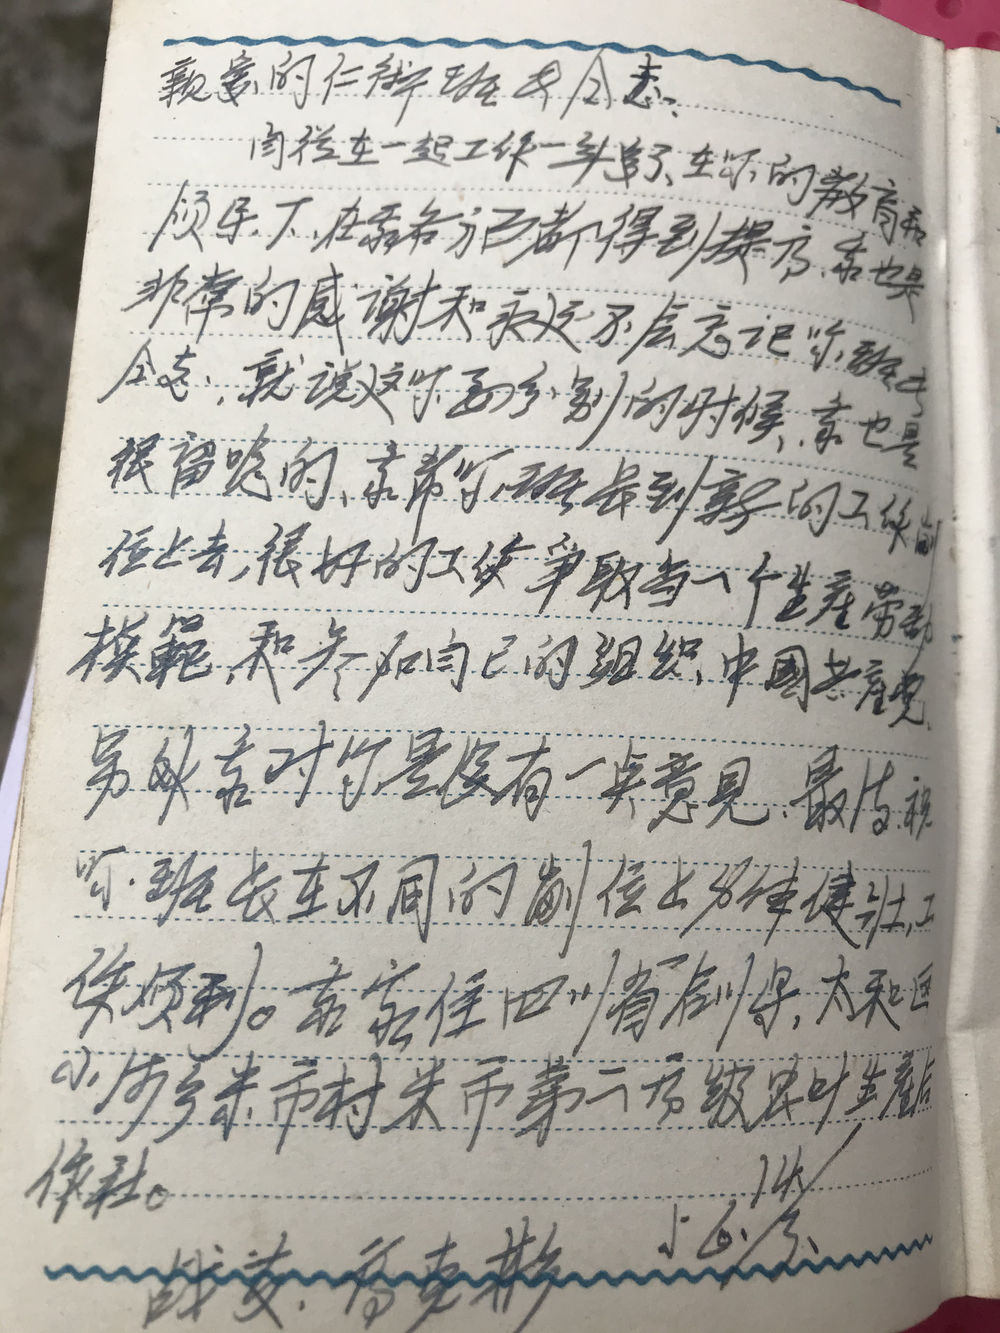 親爱的仁術班长仝志.
自從在一起工作一年多了、在你的教育和
领导下,在各方面都得到提高.我也是
非常的感謝和永远不会忘记你班长
仝志,就说这你要分别的时候,我也是
很留唸的、我帮你班长到新的工作崗
位上去,很好的工作爭取当一个生產劳动
模範,和参加自己的组织,中國共產党,
另外我对你是没有一点意見,最后祝
你班长在不同的崗位上身体健壮,工
作顺利。我家住四川省剑,太和区
小河乡米市村米市第一高级农叶生產合
作社。
战友.高克彬